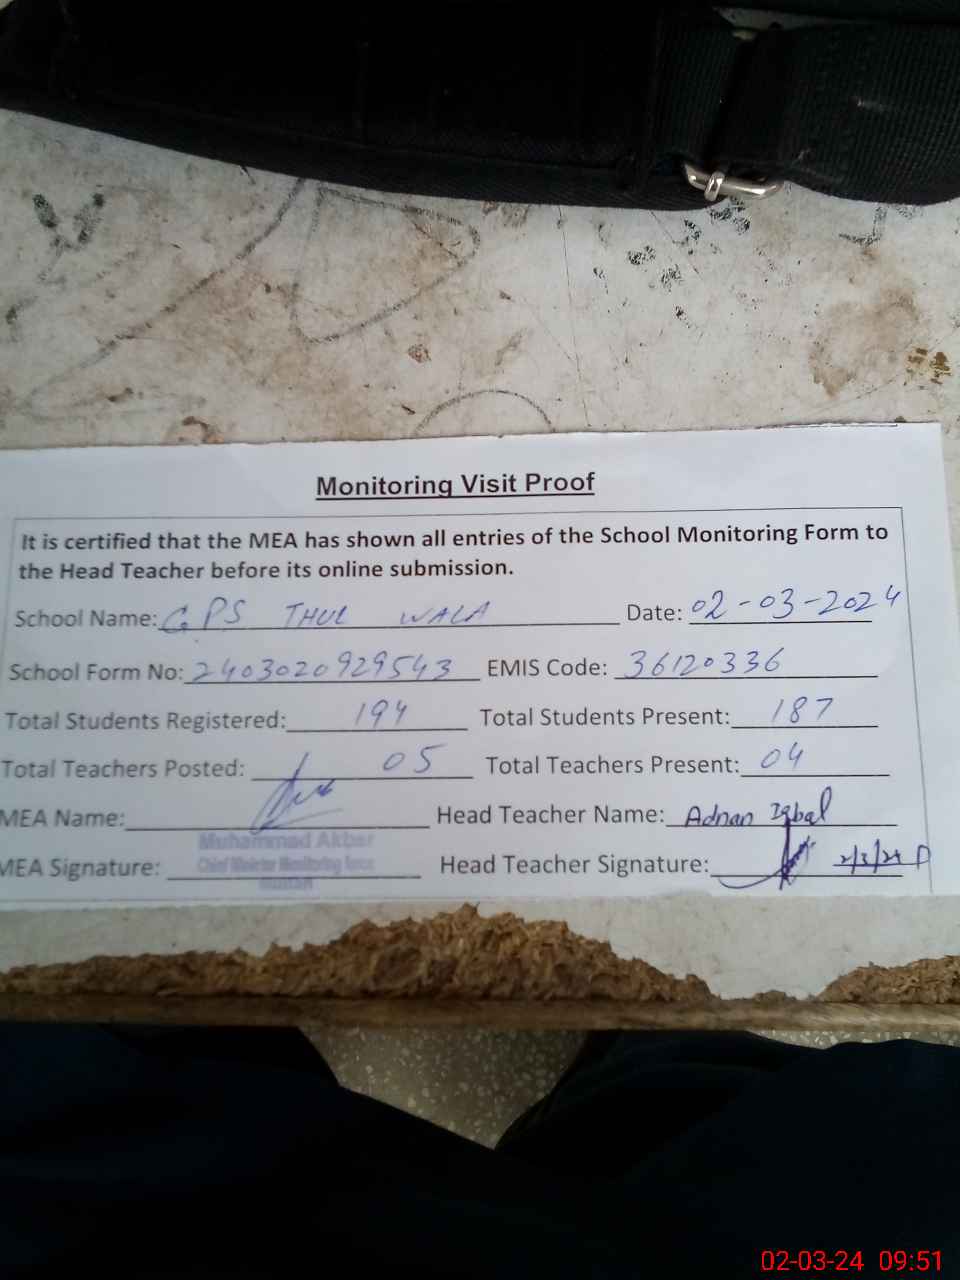 Monitoring Visit Proof
It is certified that the MEA has shown all entries of the School Monitoring Form to
the Head Teacher before its online submission.
School Name: GPS THUL WALA Date: 02-03-2024
School Form No: 2403020929543 EMIS Code: 36120336
Total Students Registered: 194 Total Students Present: 187
Total Teachers Posted: 05 Total Teachers Present: 04
MEA Name: Head Teacher Name: Adnan Iqbal
Muhammad Akbar
MEA Signature: Chief Minister Monitoring Force Head Teacher Signature: 2/3/24
02-03-24 09:51